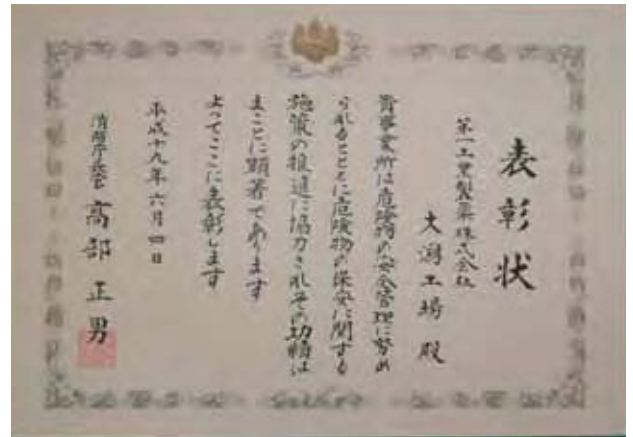 表彰状
第一工業製薬株式会社
大潟工場 殿
貴事業所は危険物の安全管理に努め
られるとともに危険物の保安に関する
施策の推進に協力されその功績は
まことに顕著であります
よってここに表彰します
平成十九年六月四日
消防庁長官 高部正男